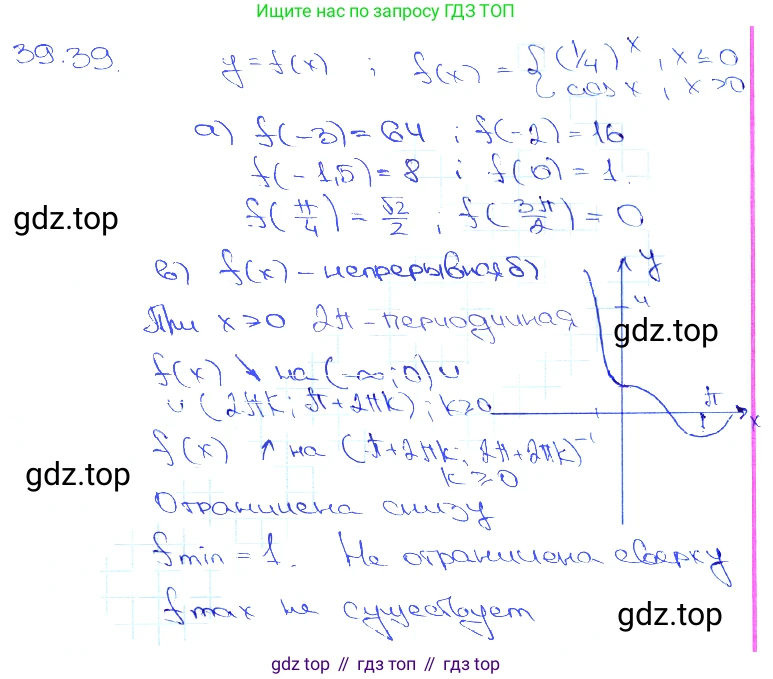 Ищите нас по запросу ГДЗ ТОП
39.39.
y=f(x) ; f(x) = { (1/4)^x , x ≤ 0
cos x , x > 0
а) f(-3) = 64 ; f(-2) = 16
f(-1,5) = 8 ; f(0) = 1.
f(π/4) = √2/2 ; f(3π/2) = 0
gdz.top
в) f(x) - непрерывная б)
y
4
При x > 0 2π - периодичная
gdz.top
f(x) ↘ на (-∞; 0) ∪
∪ (2πk; π+2πk) ; k≥0
π
x
f(x) ↗ на (π+2πk; 2π+2πk)
-1
k ≥ 0
gdz.top
Ограничена снизу
fmin = 1. Не ограничена сверху
fmax не существует
gdz.top
gdz top // гдз топ // gdz top